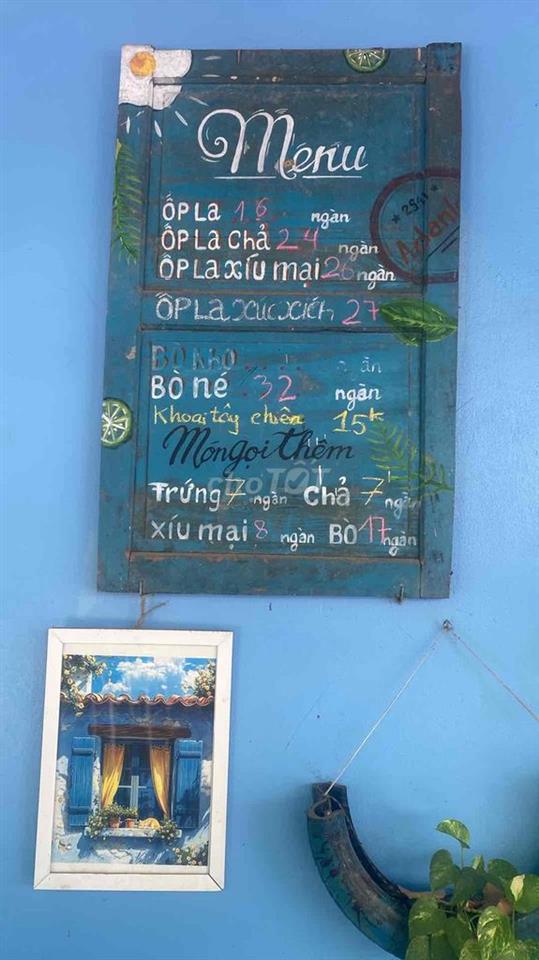 Menu
ỐP LA 16 ngàn
ỐP LA chả 24 ngàn
ỐP LA xíu mại 26 ngàn
ỐP LA xúc xích 27
Bò kho
Bò né 32 ngàn
Khoai tây chiên 15k
Món gọi thêm
Trứng 7 ngàn chả 7 ngàn
xíu mại 8 ngàn Bò 17 ngàn
chợTỐT